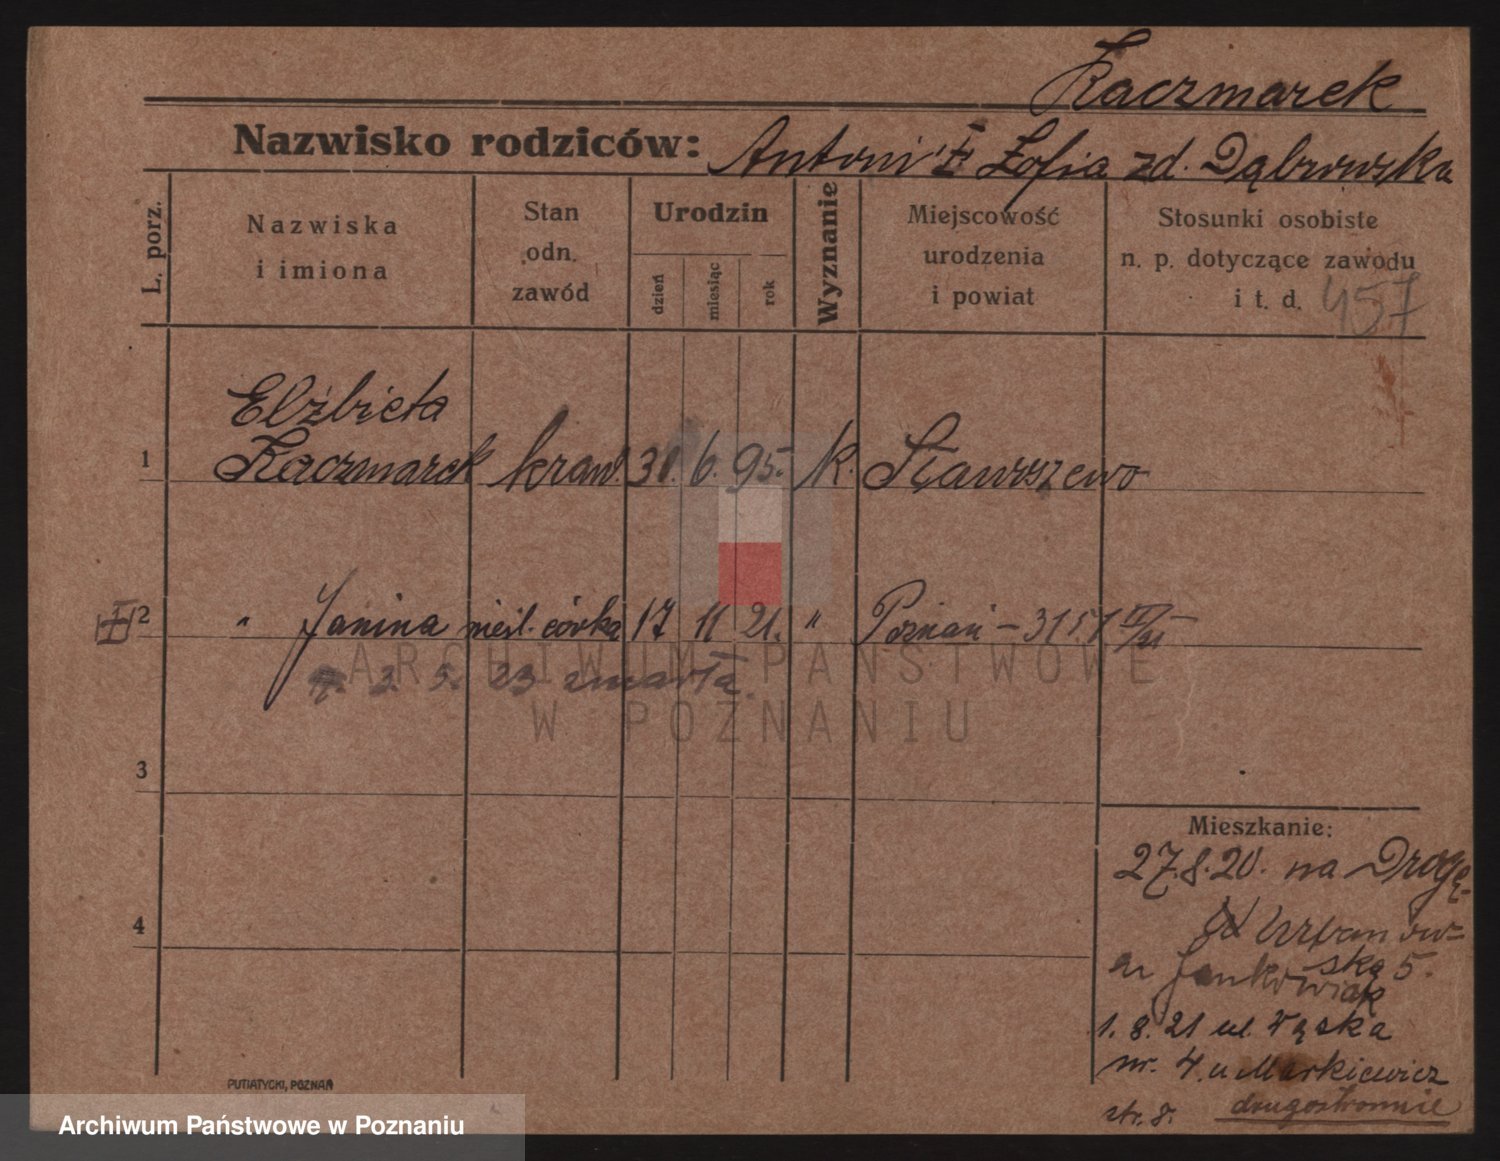 Kaczmarek
Nazwisko rodziców: Antoni i Zofia zd. Dąbrowska
L. porz.
Nazwiska
i imiona
Stan
odn.
zawód
Urodzin
dzień
miesiąc
rok
Wyznanie
Miejscowość
urodzenia
i powiat
Stosunki osobiste
n. p. dotyczące zawodu
i t. d.
457
Elżbieta
1 Kaczmarek kraw. 31. 6. 95. k. Stawoszewo
2 " Janina nieśl. córka 17 11 21. " Poznań
3. 5. 23 zmarła.
3
4
Mieszkanie:
27.8.20. na Drogę
Urbanow-
ską 5.
u Jankowiak
1. 8. 21 ul. Wąska
nr. 4. u Markiewicz
str. 8. drugostronnie
PUTIATYCKI, POZNAŃ
ARCHIWUM PAŃSTWOWE
W POZNANIU
Archiwum Państwowe w Poznaniu